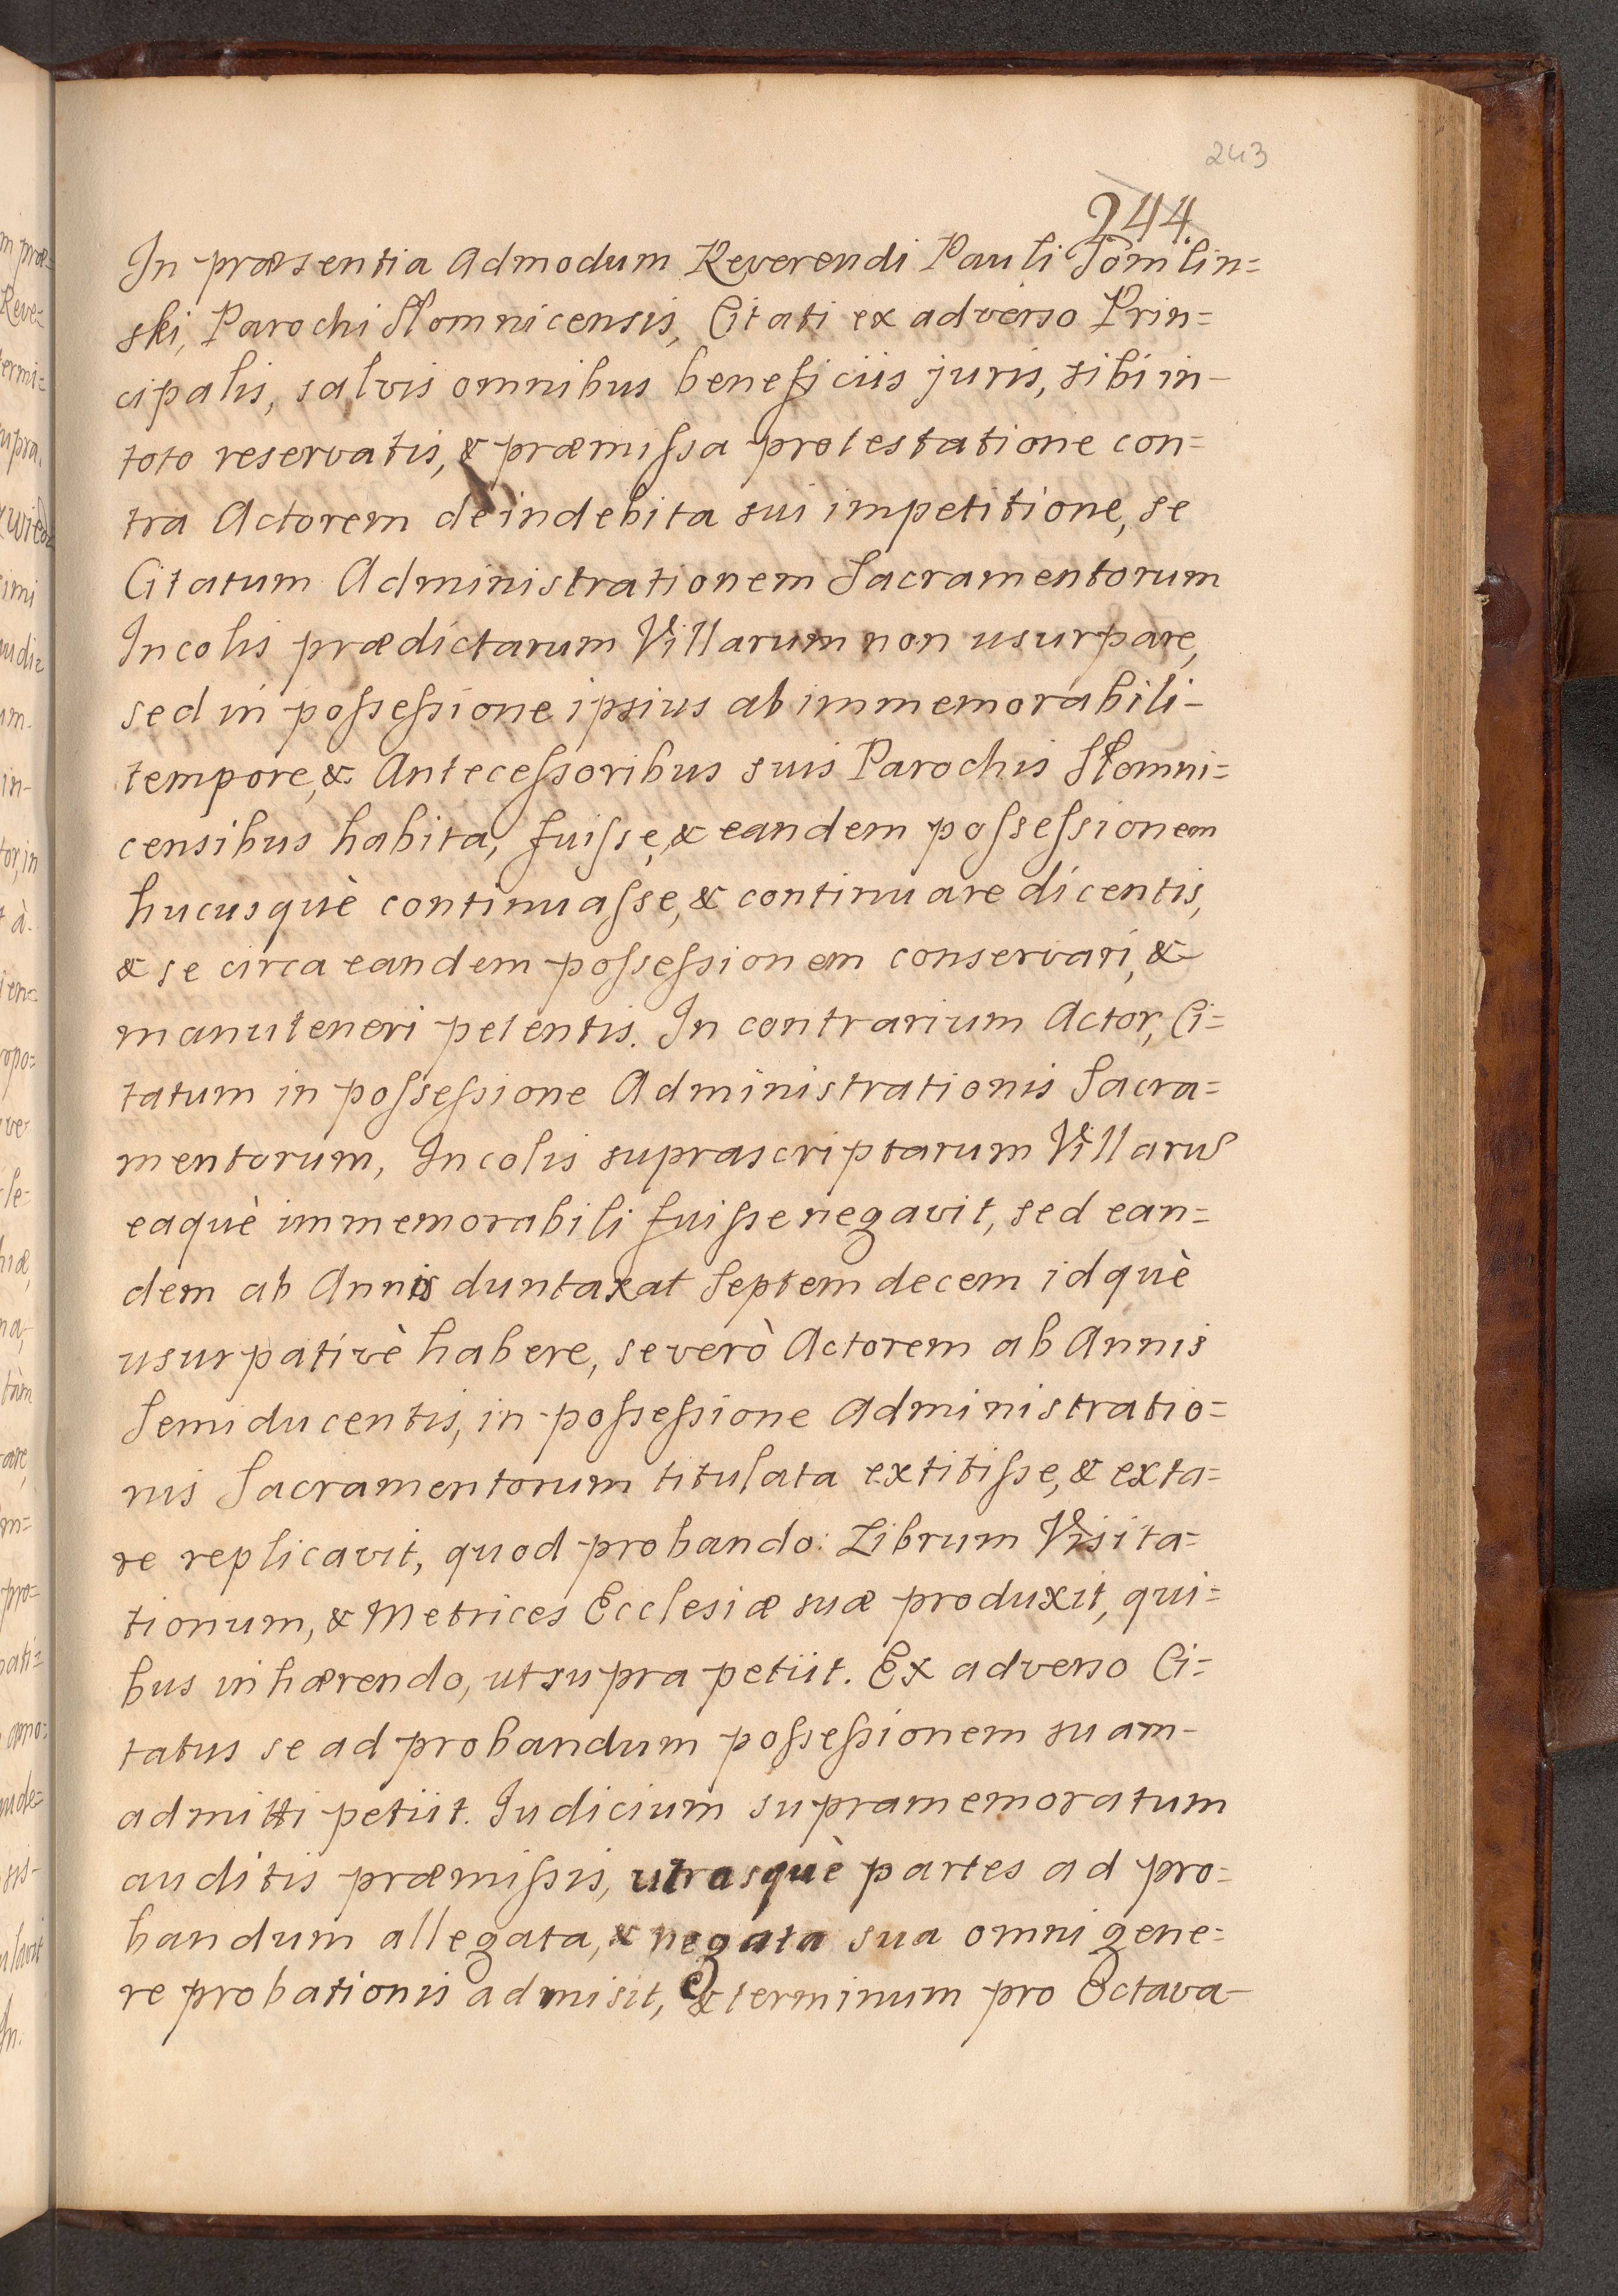 243
244
In præsentia Admodum Reverendi Pauli Tomilin=
ski, Parochi Słomnicensis, Citati ex adverso Prin=
cipalis, salvis omnibus beneficiis juris, sibi in-
toto reservatis, & præmissa protestatione con=
tra Actorem de indebita sui impetitione, se
Citatum Administrationem Sacramentorum
Incolis prædictarum Villarum non usurpare,
sed in possessione ipsius ab immemorabili-
tempore, & Antecessoribus suis Parochis Słomni=
censibus habita, fuisse, & eandem possessionem
hucusquè continuasse, & continuare dicentis,
& se circa eandem possessionem conservari, &
manuteneri petentis. In contrarium Actor, Ci=
tatum in possessione Administrationis Sacra=
mentorum, Incolis suprascriptarum Villarũ
eaquè immemorabili fuisse negavit, sed ean=
dem ab Annis duntaxat Septem decem idquè
usurpativè habere, se verò Actorem ab Annis
Semiducentis, in possessione Administratio=
nis Sacramentorum titulata extitisse, & exta=
re replicavit, quod probando: Librum Visita=
tionum, & Metrices Ecclesiæ suæ produxit, qui=
bus inhærendo, ut supra petiit. Ex adverso Ci=
tatus se ad probandum possessionem suam-
admitti petiit. Iudicium supramemoratum
auditis præmissis, utrasquè partes ad pro=
bandum allegata, & negata sua omni gene=
re probationis admisit, & terminum pro Octava-